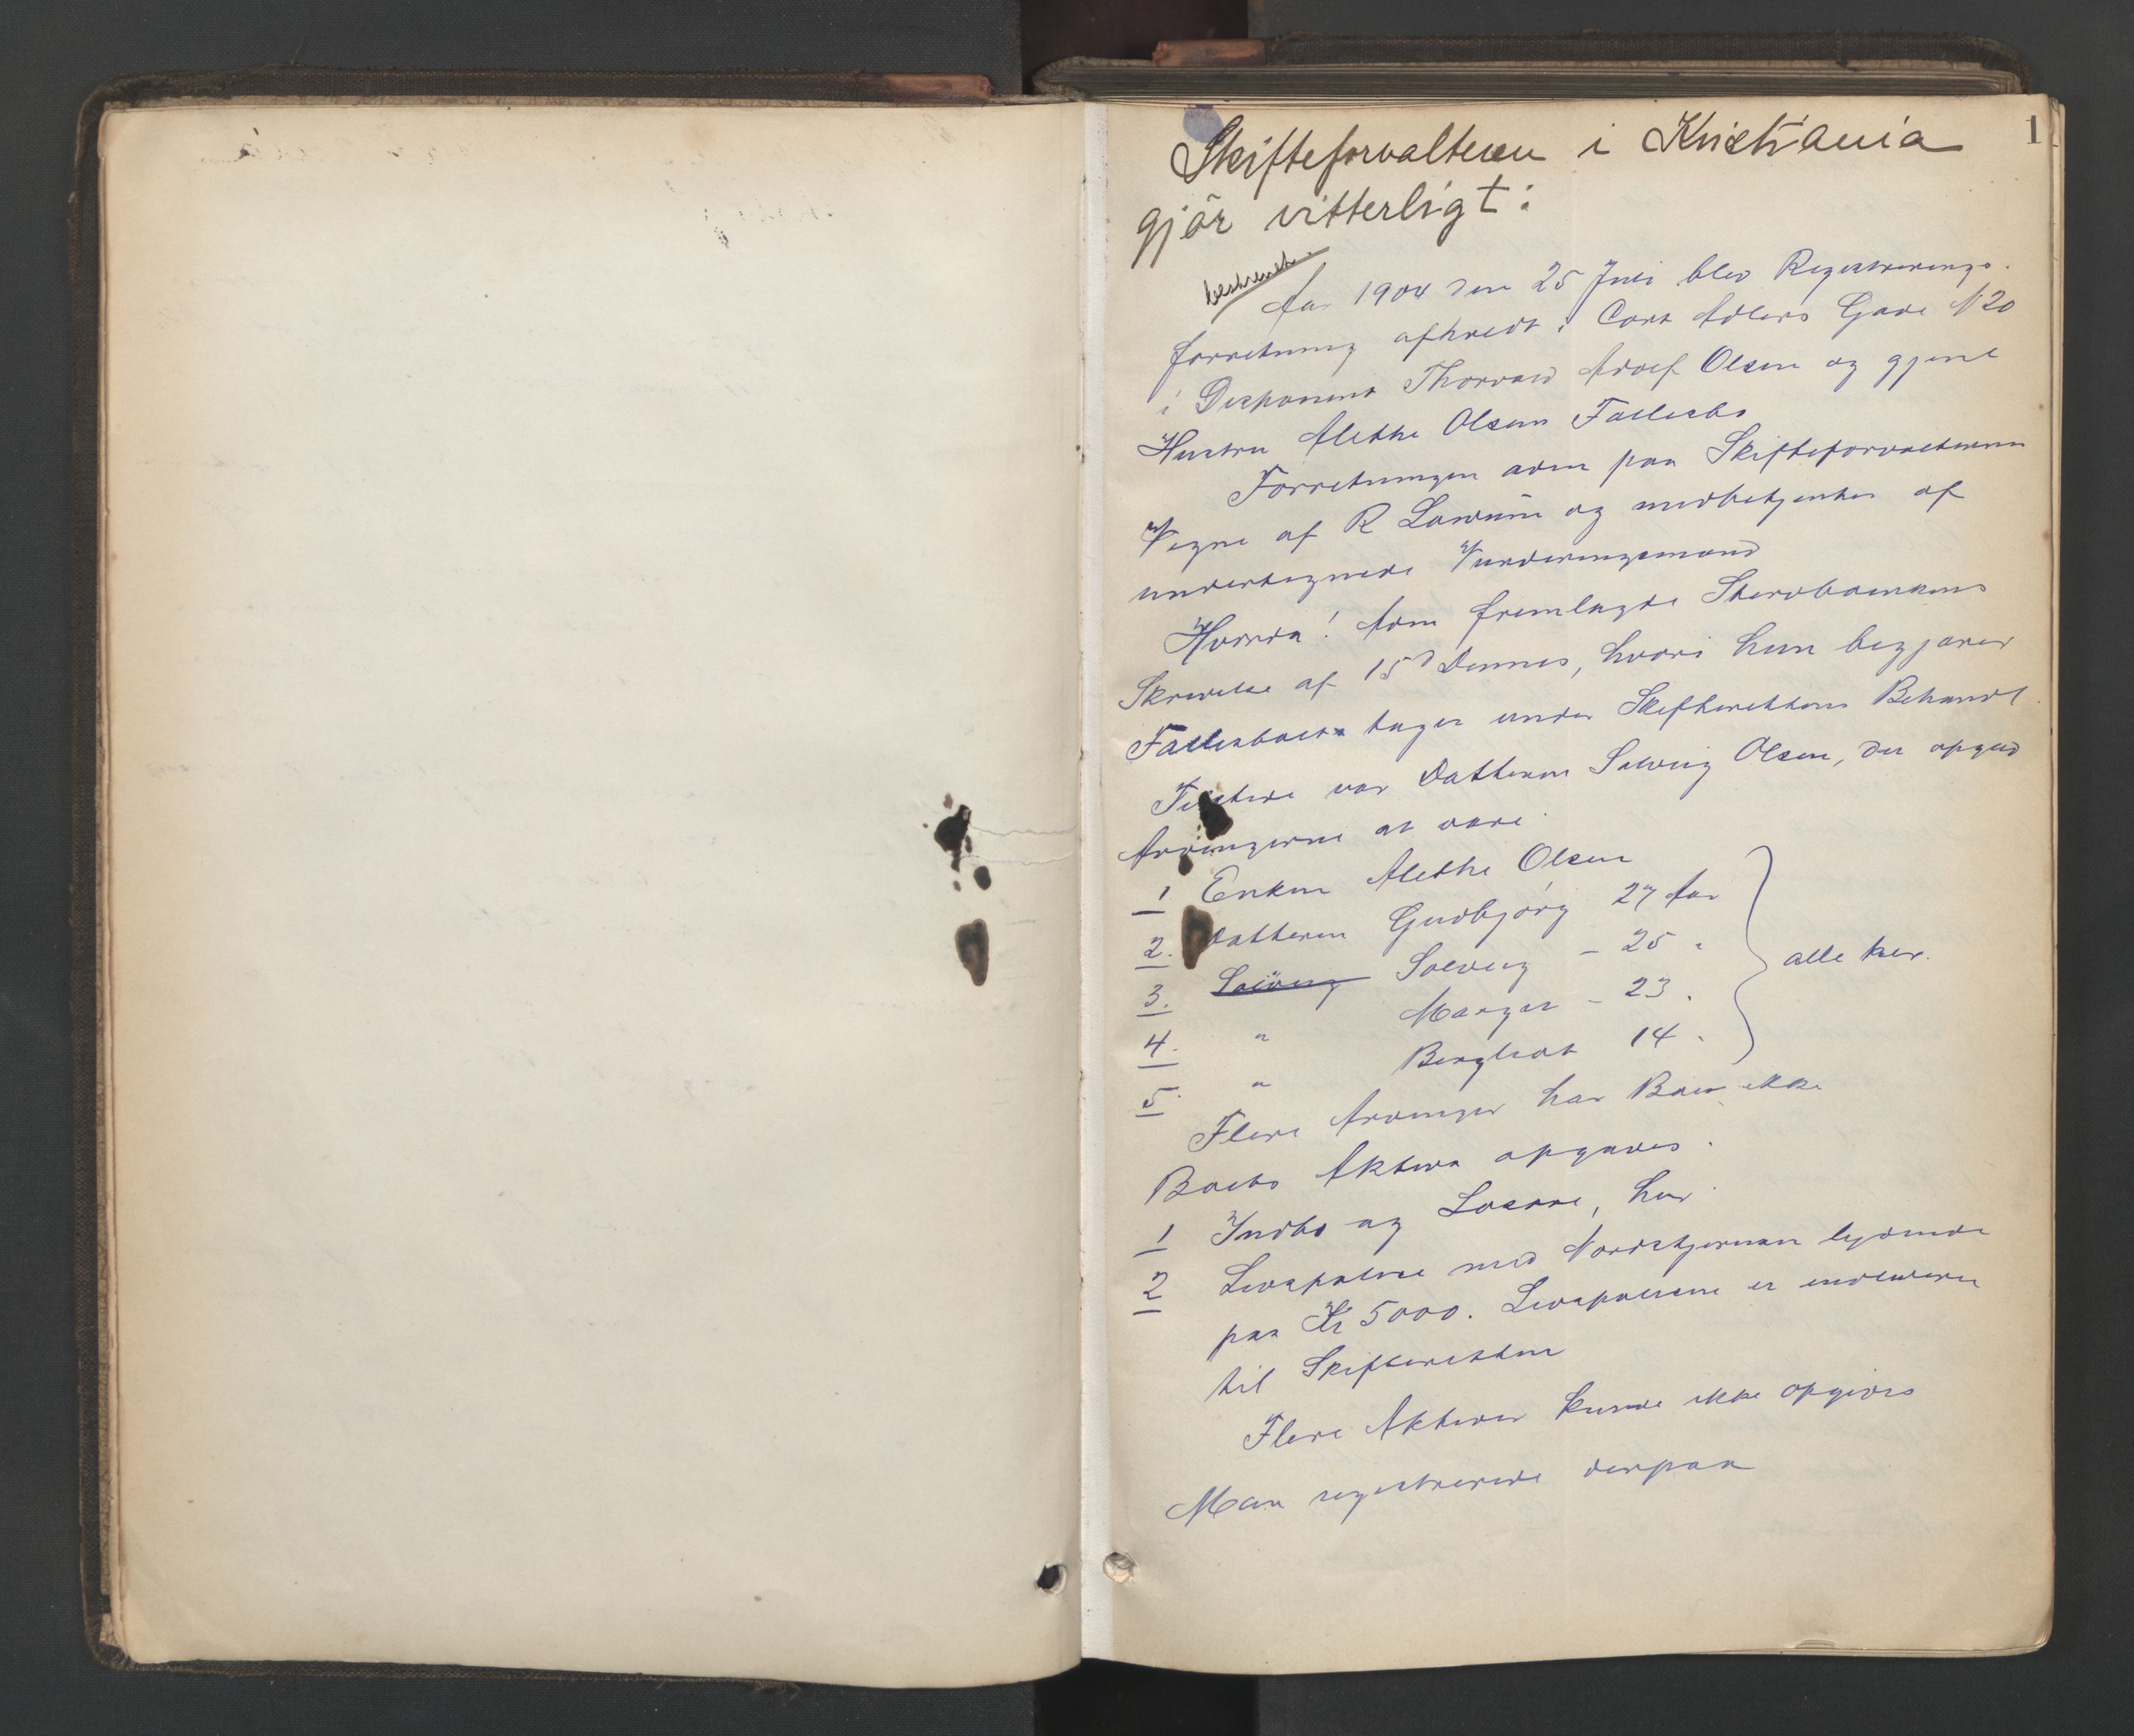 1
Skifteforvalteren i Kristiania
gjör vitterligt:
beskrevet.
Aar 1904 den 25 Juli blev Registrerings-
forretning afholdt i Cort Adlers Gade N 20
i Disponent Thorvald Adolf Olsen og gjenl
Hustru Alethe Olsens Fællesbo
Forretningen adm paa Skifteforvalterens
Vegne af R Lowum og medbetjentes af
undertegnede Vurderingsmand
Hvorda! Adm fremlagde Stervboenkens
Skrivelse af 15 d Dennes, hvori hun begjærer
Fællesboet taget under Skifterettens Behandl
Tilstede var Datteren Solveig Olsen, der opgav
Arvingerne at være
1 Enken Alethe Olsen
2. Datteren Gudbjörg 27 Aar
3. Solveig Solveig - 25 "
4. " Margar - 23 "
5. " Bergliot 14 "
alle her.
Flere Arvinger har Boet ikke
Boets Aktiva opgaves.
1 Indbo og Løsøre, her
2 Livspolice med Nordstjernan lydende
paa Kr 5000. Livspolicen er indleveret
til Skifteretten
Flere Aktiver kunde ikke opgives
Man registrerede derpaa